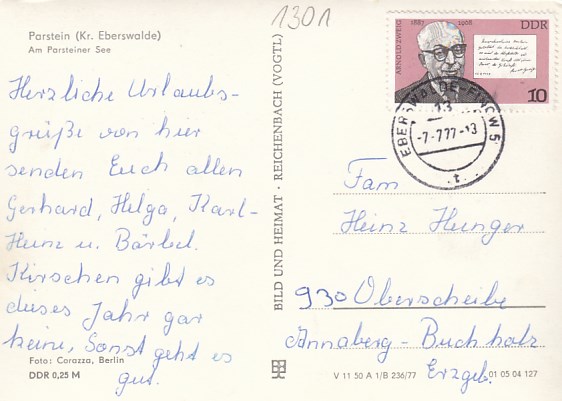 1301
Parstein (Kr. Eberswalde)
Am Parsteiner See
Herzliche Urlaubs-
grüße von hier
senden Euch allen
Gerhard, Helga, Karl-
Heinz u. Bärbel.
Kirschen gibt es
dieses Jahr gar
keine, Sonst geht es
gut.
Foto: Corazza, Berlin
DDR 0,25 M
BILD UND HEIMAT · REICHENBACH (VOGTL)
ARNOLD ZWEIG
1887 1968
DDR
10
EBERSWALDE-FINOW 5
13
-7.7.77-13
t
Fam
Heinz Hunger
930 Oberscheibe
Annaberg-Buchholz
Erzgeb.
V 11 50 A 1/B 236/77
01 05 04 127